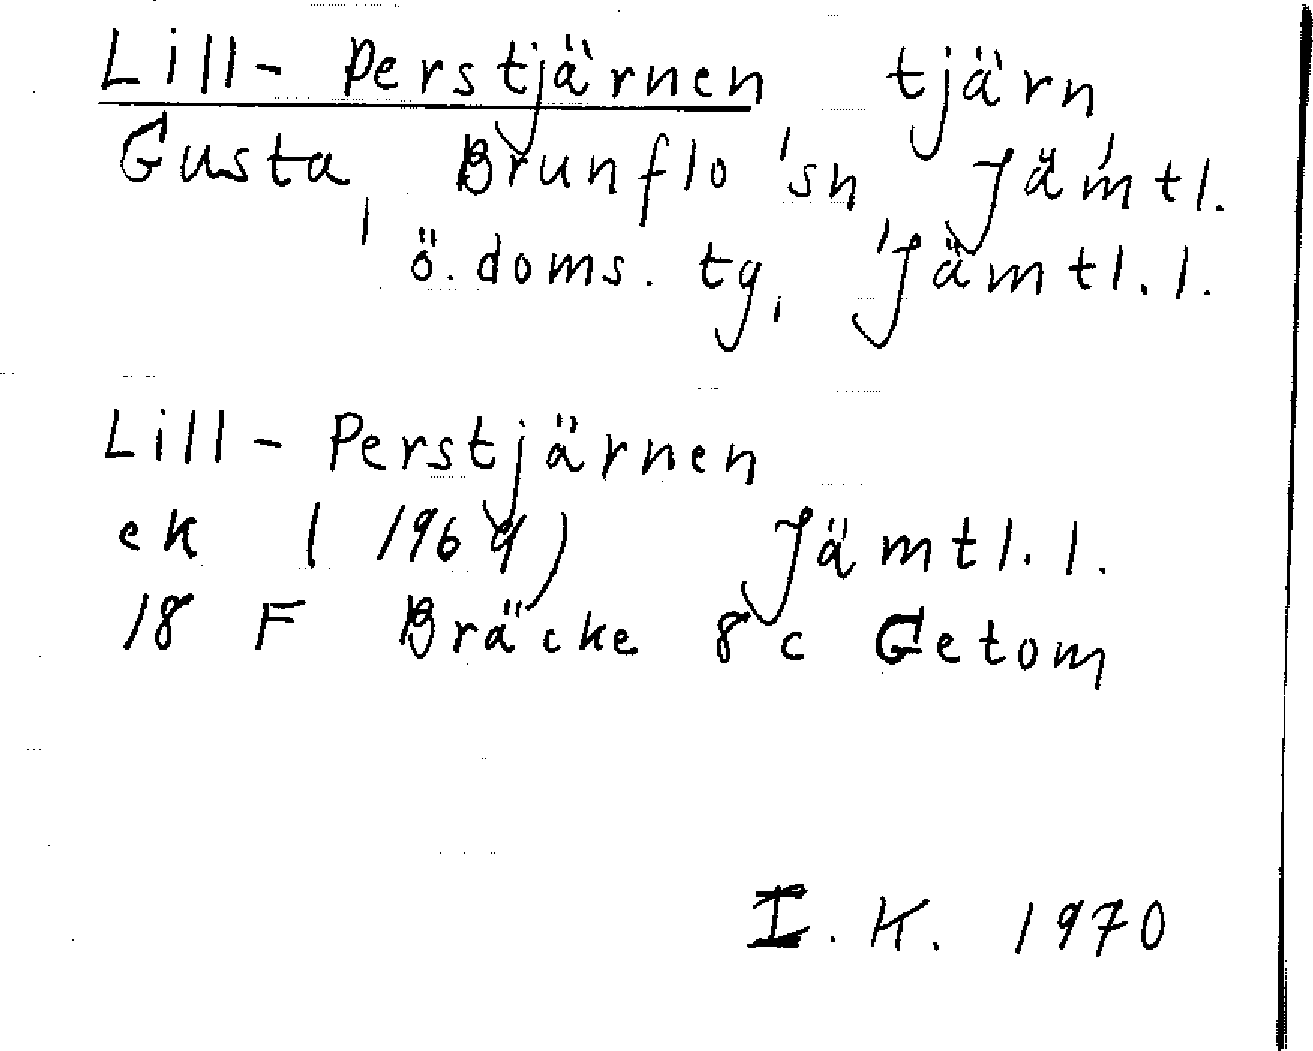 Lill-Perstjärnen tjärn
Gusta, Brunflo sn, Jämtl.
ö. doms. tg, Jämtl. l.
Lill-Perstjärnen
ek (1969) Jämtl. l.
18 F Bräcke 8 c Getom
I. K. 1970